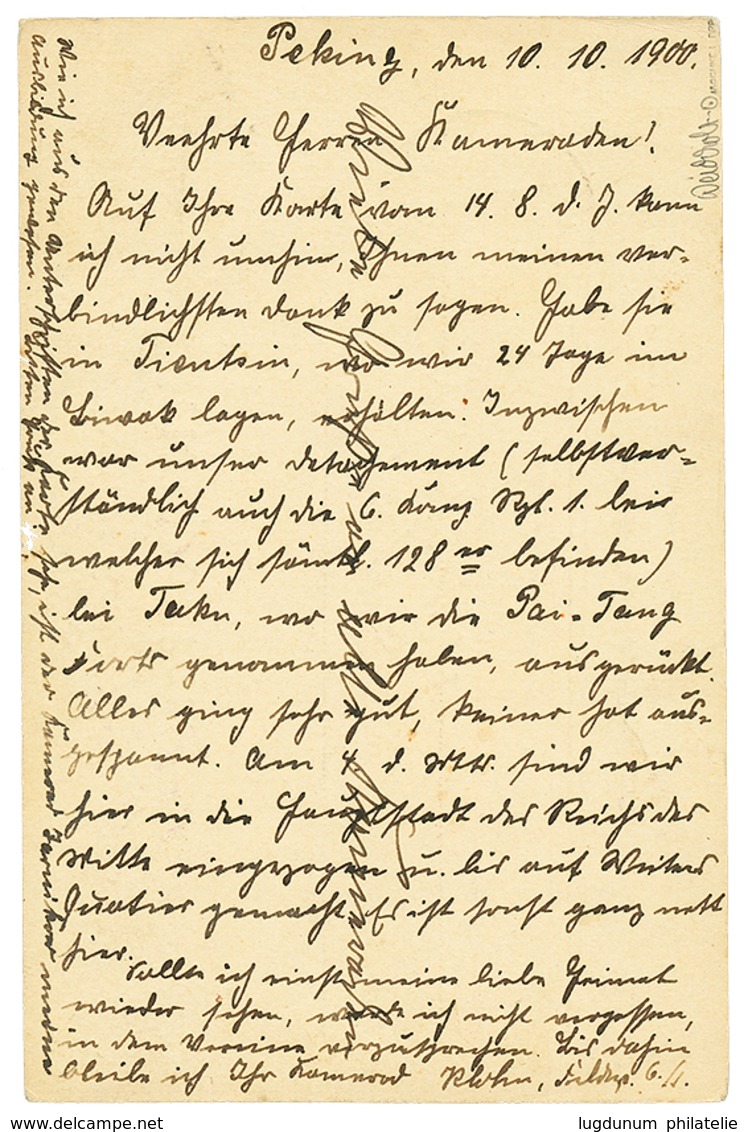 Peking, den 10. 10. 1900.
Veehrte Herren Kameraden!
Auf Ihre Karte vom 14. 8. d. J. kann
ich nicht umhin, Ihnen meinen ver-
bindlichsten Dank zu sagen. Habe sie
in Tientsin, wo wir 24 Tage im
Biwak lagen, erhalten. Inzwischen
war unser Detachement (selbstver-
ständlich auch die 6. Komp. Rgt. 1. bei
welcher sich sämtl. 128er befinden)
bei Taku, wo wir die Pai-Tang
Forts genommen haben, ausgerückt.
Alles ging sehr gut, keiner hat aus-
gespannt. Am 4 d. Mts. sind wir
hier in die Hauptstadt des Reichs der
Mitte eingezogen u. bis auf Weiteres
Quatier gemacht. Es ist sonst ganz nett
hier.
Sollte ich einst meine liebe Heimat
wieder sehen, werde ich nicht vergessen,
in dem Vereine vorzusprechen. Bis dahin
bleibe ich Ihr Kamerad
Wie ich aus den Unterschriften der Karte sehe, ist der Kamerad
Ausbildung gewesen.
Grüße an alle
lugdunum philatelie